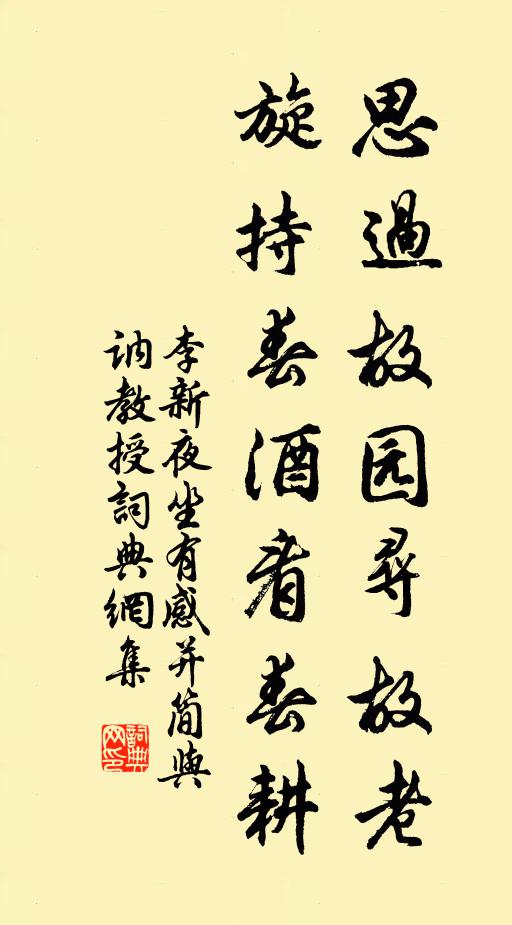 思過故园尋故老
旋持春酒看春耕
李新夜坐有感并简與
讷教授詞典網集
詞典
网印